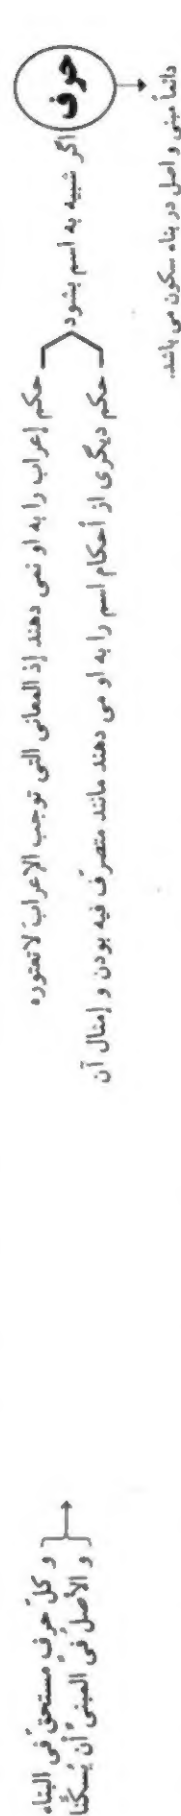 حرف
دائماً مبنی و اصل در بناء سکون می باشد.
اگر شبیه به اسم بشود
حکم إعراب را به او نمی دهند إذ المعانی التی توجب الإعراب لاتعتوره
حکم دیگری از أحکام اسم را به او می دهند مانند متصرّف فیه بودن و إمثال آن
و کلّ حرفٍ مستحقّ فی البناء
و الأصلُ فی المبنیّ أن یُسکَّنا